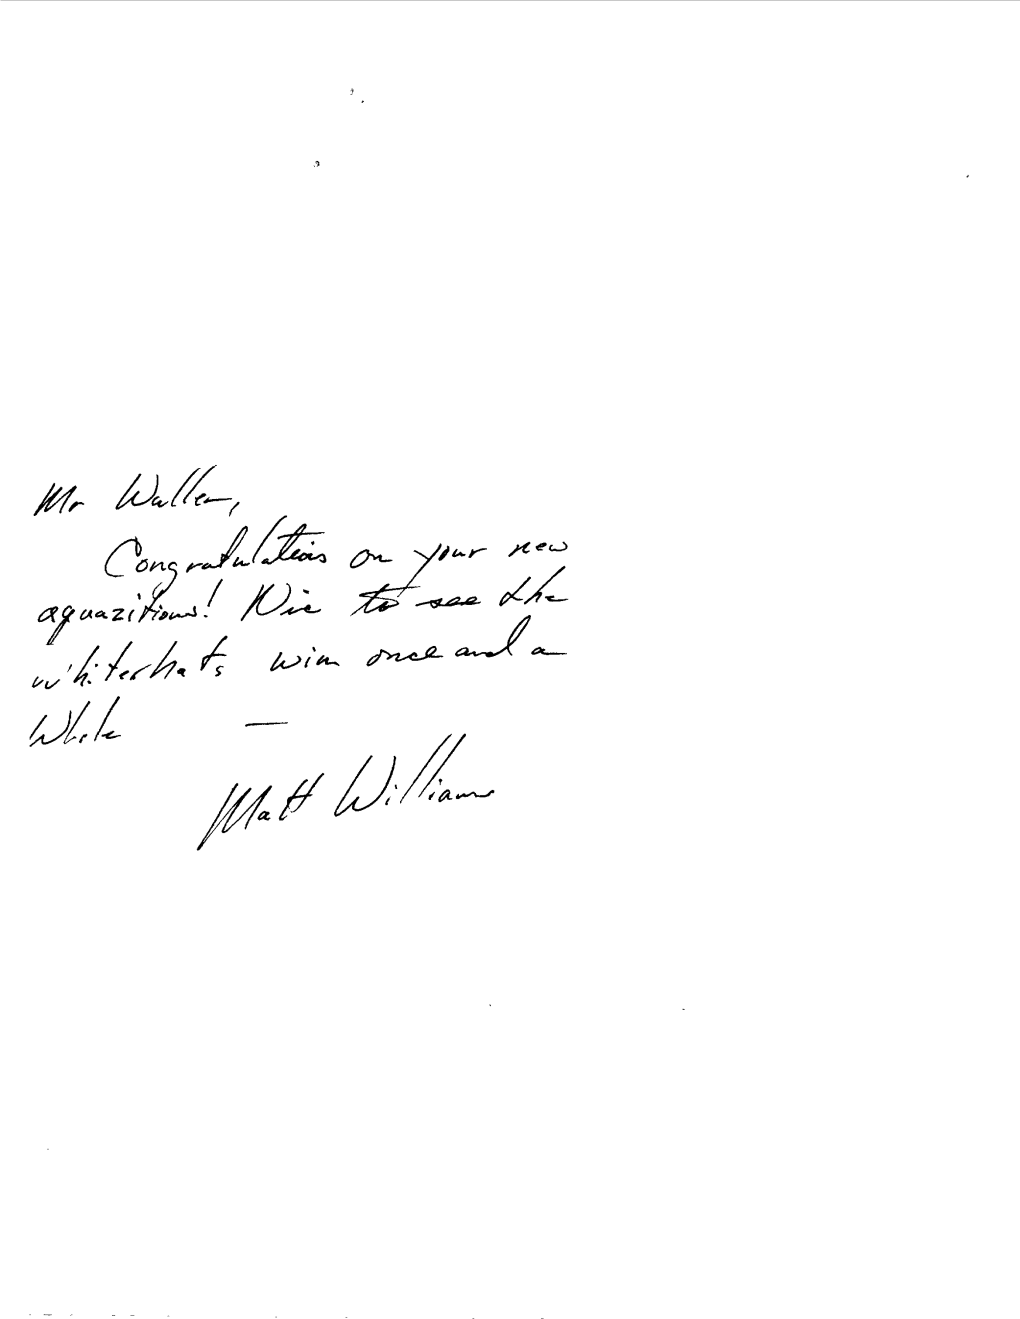 Mr Waller,
Congratulations on your new
aquazitions! Nice to see the
whiterhats win once and a
While —
Matt Williams